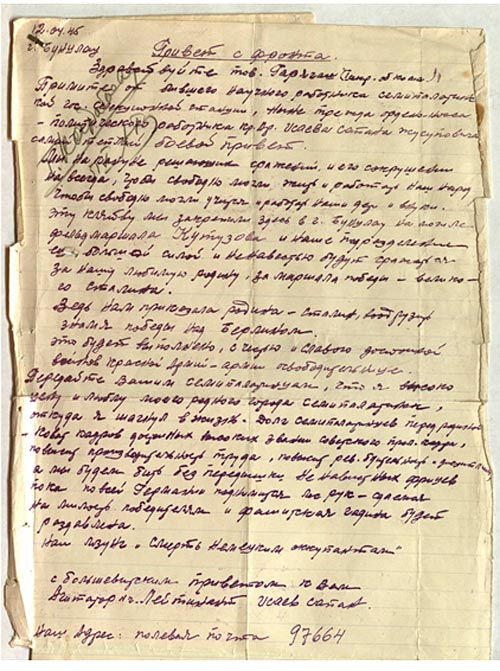 12.04.45
г. Бунцлау Привет с фронта.
Здравствуйте тов.
Примите от бывшего научного работника семипалатинс-
кой станции, ныне трижды орденоносца
- политического работника кр. Ар. Исаева Сапана Жусуповича
самый теплый боевой привет.
Мы на рубеже решающих сражений, и его сокрушении
навсегда, чтобы свободно могли жить и работать наш народ
чтобы свободно могли учиться и работать наши дети и внуки.
Эту клятву мы закрепили здесь в г. Бунцлау на могиле
фельдмаршала Кутузова и наше подразделение
с большей силой и ненавистью будут сражаться
за нашу любимую родину, за маршала победы - велико-
го Сталина.
Ведь нам приказала родина - Сталин, водрузить
знамя победы над Берлином.
Это будет выполнено, с честью и славой достойной
воинов Красной Армии - армии освободительницы
Передайте Вашим семипалатинцам, что я высоко
ценю и люблю моего родного города Семипалатинск,
откуда я шагнул в жизнь. Долг семипалатинцев перед родиной
- кадров достойных высоких звании советского
повысить производительность труда, повысить рев. бдительность
а мы будем бить без передышки ненавистных фрицев
пока по всей Германии поднимутся лес рук - сдаемся
на милость победителям и фашистская гадина будет
раздавлена.
Наш лозунг "Смерть немецким оккупантам"
с большевистским приветом к Вам
Агитатор Лейтенант Исаев Сапан.
Наш адрес: полевая почта 97664